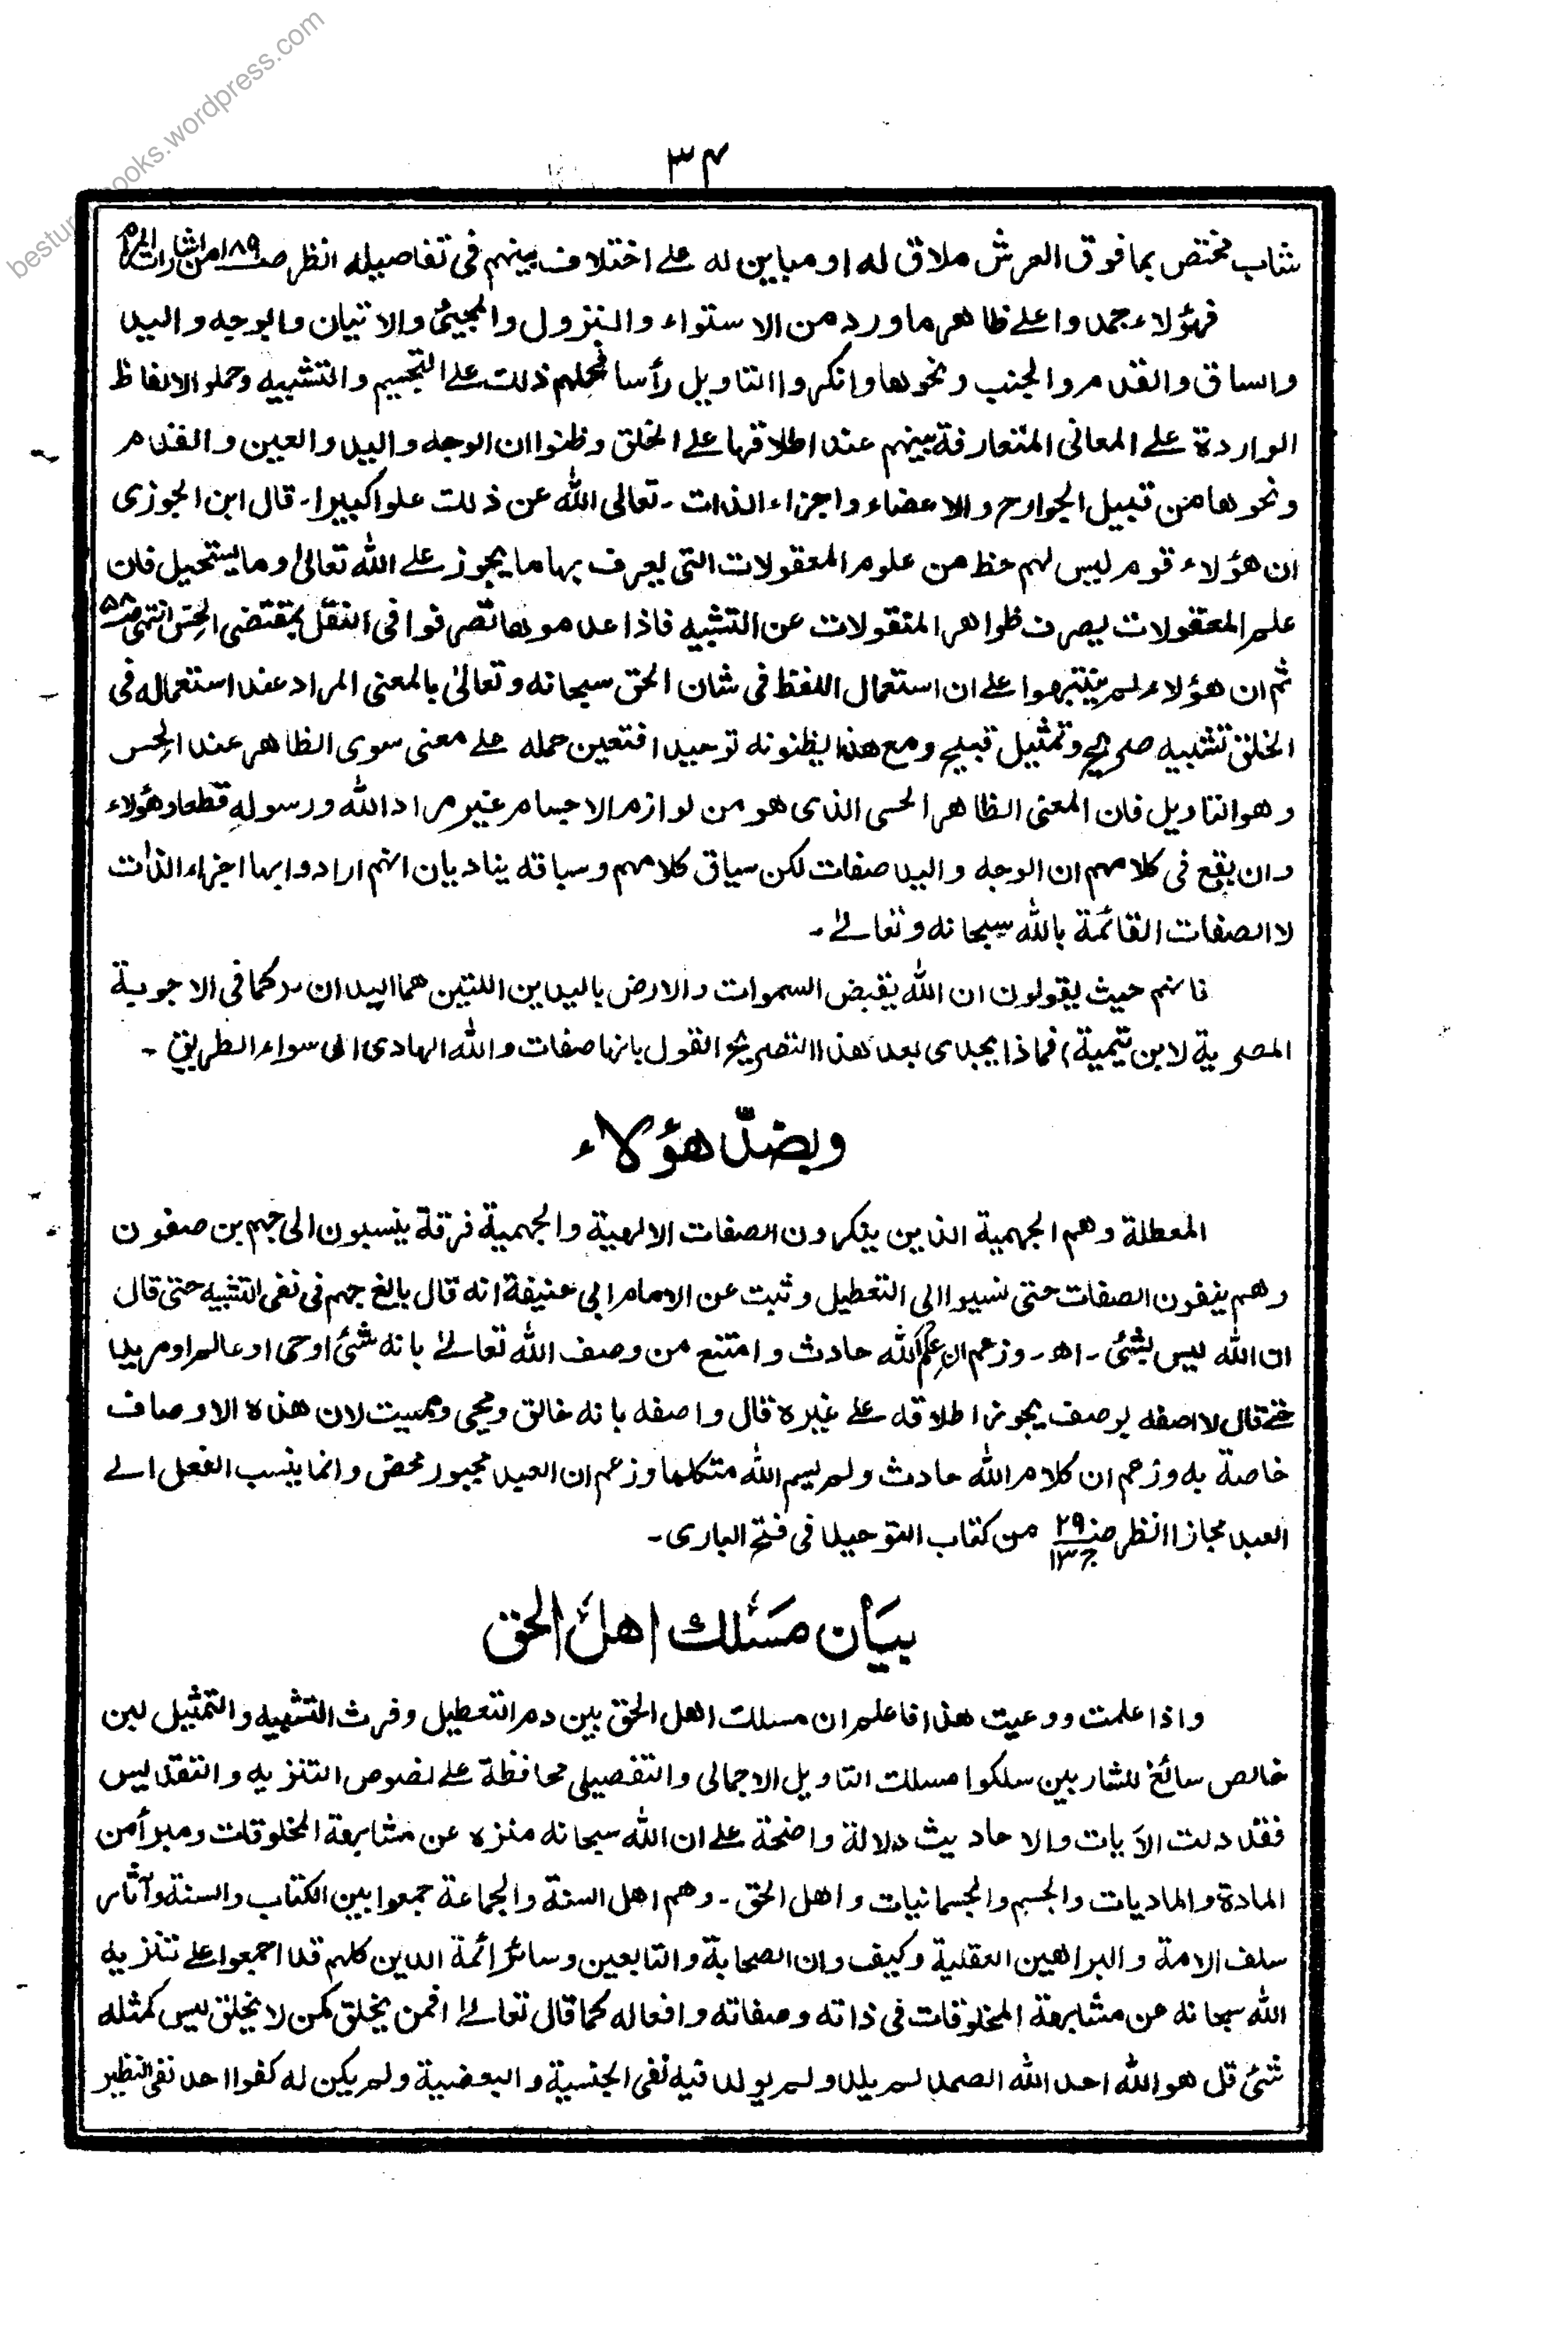 besturdubooks.wordpress.com
٣٤
شاب مختص بما فوق العرش ملاق له او مباين له على اختلاف بينهم فى تفاصيله انظر صـ١٨٩ من اشارات المرام
فهؤلاء جمدوا على ظاهر ما ورد من الاستواء والنزول والمجيئ والاتيان والوجه واليد
والساق والقدم والجنب ونحوها وانكروا التاويل رأسا فحملهم ذلك على التجسيم والتشبيه وحملوا الالفاظ
الواردة على المعانى المتعارفة بينهم عند اطلاقها على الخلق وظنوا ان الوجه واليد والعين والقدم
ونحوها من قبيل الجوارح والاعضاء واجزاء الذات ـ تعالى الله عن ذلك علوا كبيرا ـ قال ابن الجوزى
ان هؤلاء قوم ليس لهم حظ من علوم المعقولات التى يعرف بها ما يجوز على الله تعالى وما يستحيل فان
علم المعقولات يصرف ظواهر المنقولات عن التشبيه فاذا عدموها تصرفوا فى النقل بمقتضى الحس انتهى صـ٥٨
ثم ان هؤلاء لم يتنبهوا على ان استعمال اللفظ فى شان الحق سبحانه وتعالى بالمعنى المراد عند استعماله فى
الخلق تشبيه صريح وتمثيل قبيح ومع هذا يظنونه توحيدا فتعين حمله على معنى سوى الظاهر عند الحس
وهو التاويل فان المعنى الظاهر الحسى الذى هو من لوازم الاجسام غير مراد الله ورسوله قطعا وهؤلاء
وان يقع فى كلامهم ان الوجه واليد صفات لكن سياق كلامهم وسباقه يناديان انهم ارادوا بها اجزاء الذات
لا الصفات القائمة بالله سبحانه وتعالى ـ
فانهم حيث يقولون ان الله يقبض السموات والارض باليدين اللتين هما اليدان (كما فى الاجوبة
المصرية لابن تيمية) فماذا يجدى بعد هذا التصريح القول بانها صفات والله الهادى الى سواء الطريق ـ
وبضدّ هؤلاء
المعطلة وهم الجهمية الذين ينكرون الصفات الالهية والجهمية فرقة ينسبون الى جهم بن صفون
وهم ينفون الصفات حتى نسبوا الى التعطيل وثبت عن الامام ابى حنيفة انه قال بالغ جهم فى نفى التشبيه حتى قال
ان الله ليس بشئ ـ اهـ ـ وزعم ان علم الله حادث وامتنع من وصف الله تعالى بانه شئ او حى او عالم او مريد
حتى قال لا اصفه بوصف يجوز اطلاقه على غيره قال واصفه بانه خالق ومحى ومميت لان هذه الاوصاف
خاصة به وزعم ان كلام الله حادث ولم يسم الله متكلما وزعم ان العبد مجبور محض وانما ينسب الفعل الى
العبد مجازا انظر صـ٢٩ ج١٣ من كتاب التوحيد فى فتح البارى ـ
بيان مسلك اهل الحق
واذا علمت ووعيت هذا فاعلم ان مسلك اهل الحق بين دم التعطيل وفرث التشبيه والتمثيل لبن
خالص سائغ للشاربين سلكوا مسلك التاويل الاجمالى والتفصيلى محافظة على نصوص التنزيه والتقديس
فقد دلت الآيات والاحاديث دلالة واضحة على ان الله سبحانه منزه عن مشابهة المخلوقات ومبرأ من
المادة والماديات والجسم والجسمانيات واهل الحق ـ وهم اهل السنة والجماعة جمعوا بين الكتاب والسنة وآثار
سلف الامة والبراهين العقلية وكيف وان الصحابة والتابعين وسائر ائمة الدين كلهم قد اجمعوا على تنزيه
الله سبحانه عن مشابهة المخلوقات فى ذاته وصفاته وافعاله كما قال تعالى افمن يخلق كمن لا يخلق ليس كمثله
شئ قل هو الله احد الله الصمد لم يلد ولم يولد فيه نفى الجنسية والبعضية ولم يكن له كفوا احد نفى النظير